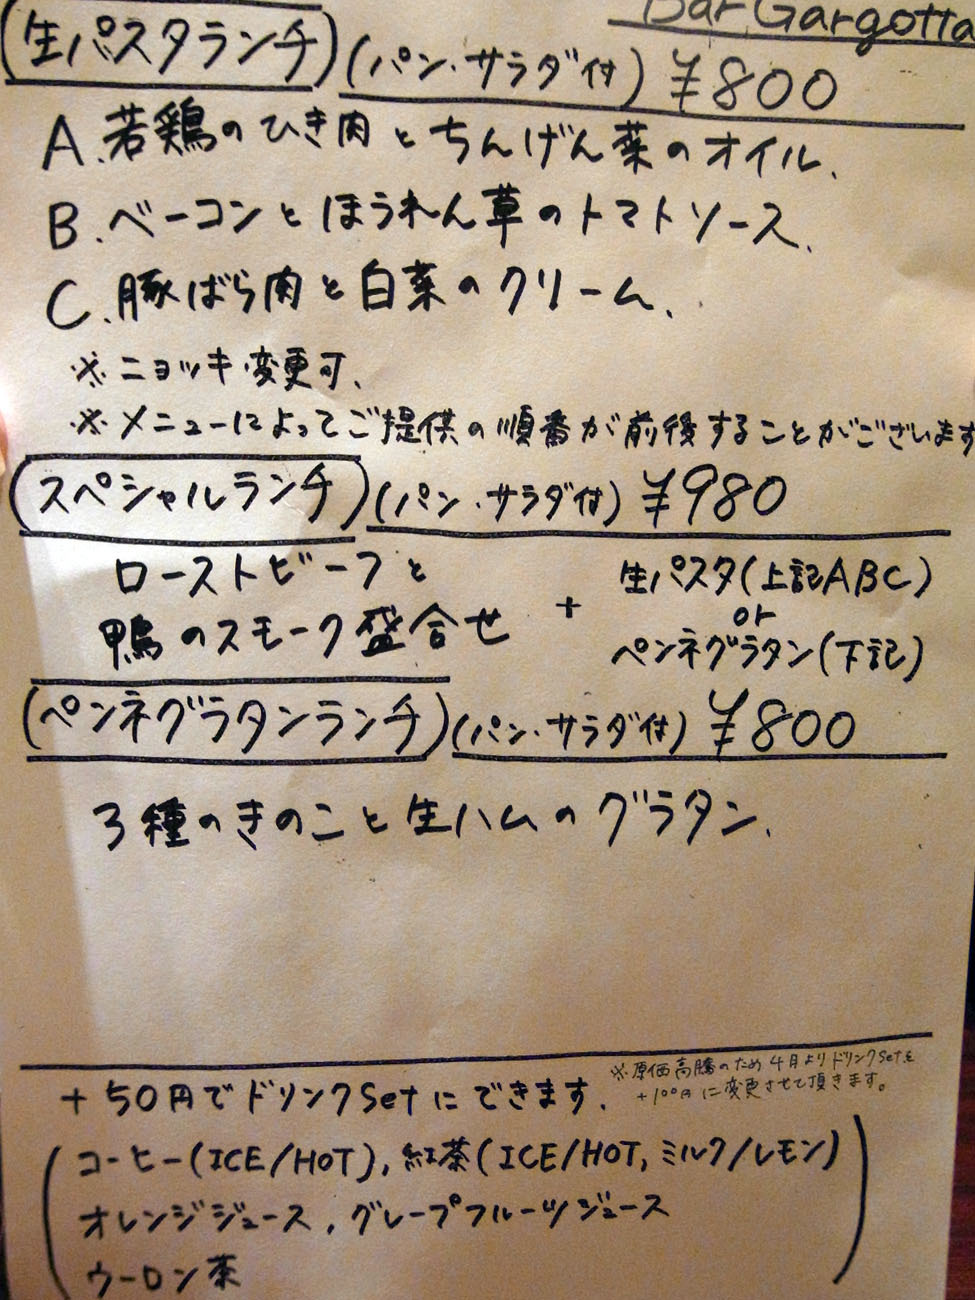 Bar Gargotta
生パスタランチ (パン・サラダ付) ¥800
A. 若鶏のひき肉とちんげん菜のオイル.
B. ベーコンとほうれん草のトマトソース.
C. 豚ばら肉と白菜のクリーム.
※ニョッキ変更可.
※メニューによってご提供の順番が前後することがございます
スペシャルランチ (パン・サラダ付) ¥980
ローストビーフと
鴨のスモーク盛合せ
+
生パスタ(上記ABC)
or
ペンネグラタン(下記)
ペンネグラタンランチ (パン・サラダ付) ¥800
3種のきのこと生ハムのグラタン.
※原価高騰のため4月よりドリンクSetを
+100円に変更させて頂きます。
+50円でドリンクSetにできます.
コーヒー(ICE/HOT), 紅茶(ICE/HOT, ミルク/レモン)
オレンジジュース, グレープフルーツジュース
ウーロン茶